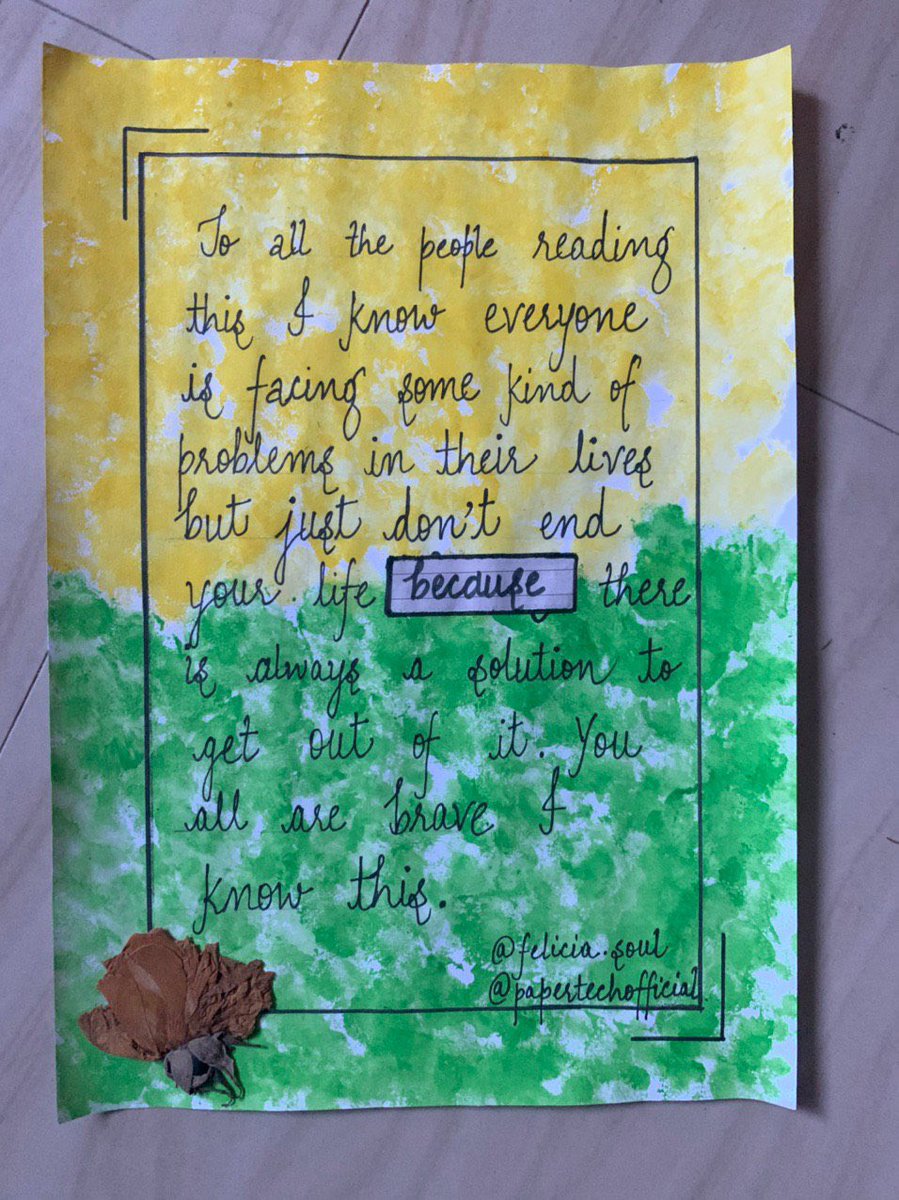 To all the people reading
this I know everyone
is facing some kind of
problems in their lives
but just don't end
your life because there
is always a solution to
get out of it. You
all are brave I
know this.
@felicia.soul
@papertechofficial